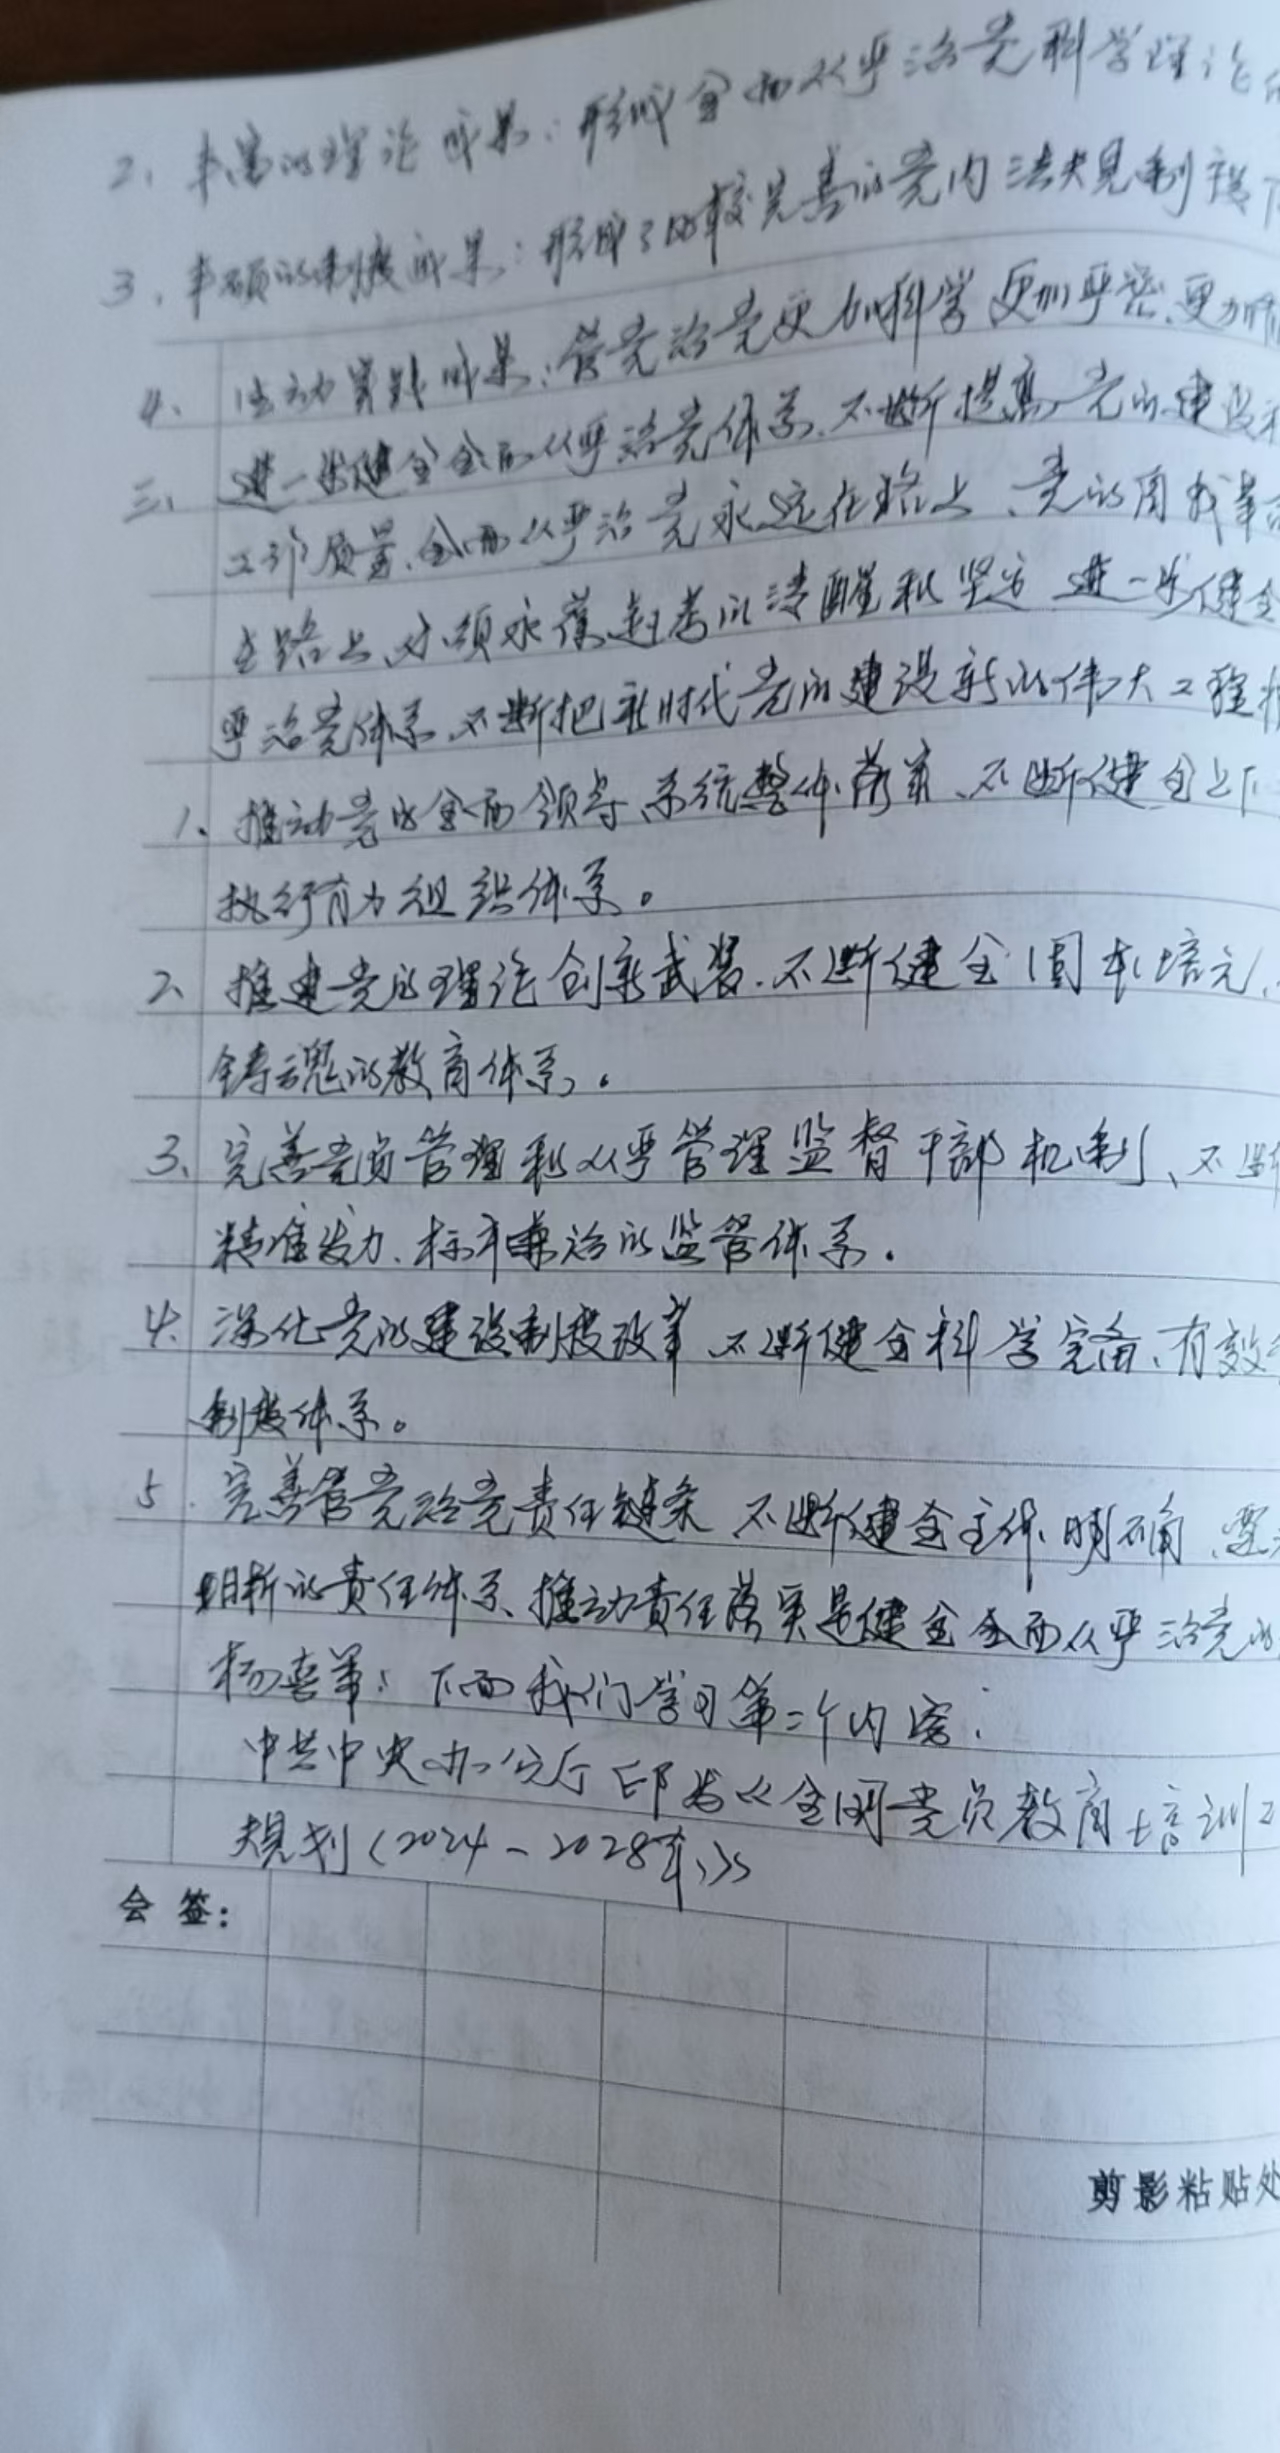 2、丰富的理论成果：形成全面从严治党科学理论
3、丰硕的制度成果：形成了比较完善的党内法规制度
4、生动实践成果：管党治党更加科学更加严密、更加
三、进一步健全全面从严治党体系、不断提高党的建设
工作质量、全面从严治党永远在路上、党的自我革
在路上、必须永葆赶考的清醒和坚定 进一步健全
严治党体系、不断把新时代党的建设新的伟大工程
1、推动党的全面领导系统整体落实、不断健全上下
执行有力组织体系。
2、推进党的理论创新武装、不断健全固本培元、
铸魂的教育体系。
3、完善党员管理和从严管理监督干部机制、不断
精准发力、标本兼治的监管体系。
4、深化党的建设制度改革、不断健全科学完备、有效
制度体系。
5、完善管党治党责任链条 不断健全主体明确、要
明晰的责任体系、推动责任落实是健全全面从严治党的
杨喜军：下面我们学习第二个内容：
中共中央办公厅印发《全国党员教育培训
规划（2024－2028年）》
会 签：
剪影粘贴处